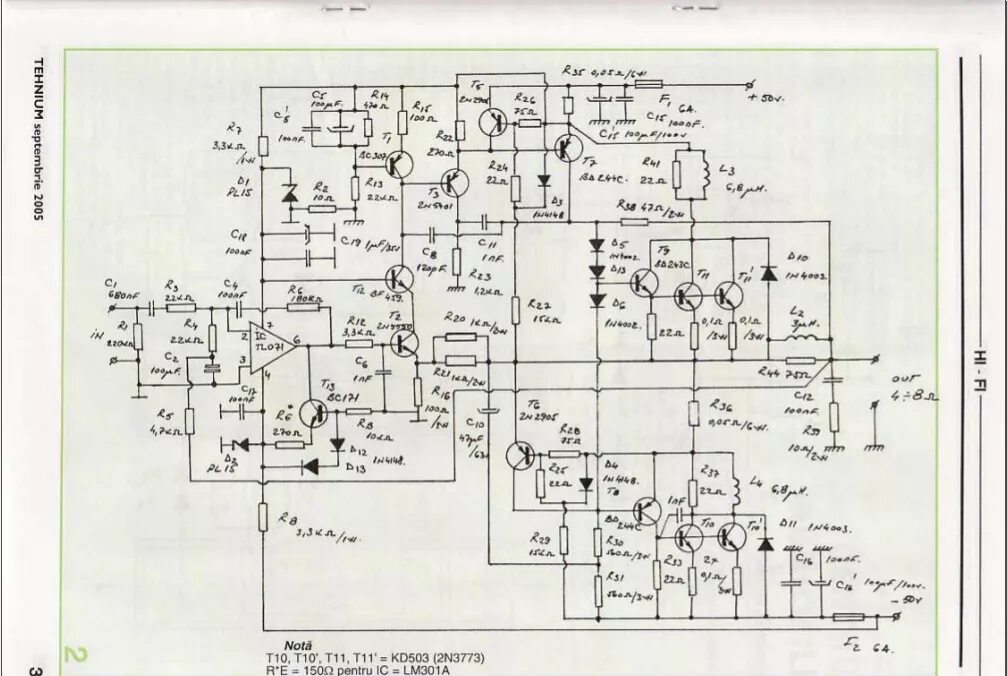 TEHNIUM septembrie 2005
HI - FI
3
2
R35 0,05Ω/6W
+50V.
F1 6A.
C15 100nF.
C'15 100µF/100V
T5
2N2905
R26
75Ω
C5
100µF.
C'5
100nF.
R14
470Ω
R15
100Ω
T1
BC307
R22
270Ω
R7
3,3KΩ
/1W
D1
PL15
R2
10Ω
R13
22KΩ
T3
2N5401
R24
22Ω
D3
1N4148
T7
BD244C.
R41
22Ω
L3
6,8µH.
R38 47Ω/2W
C18
100nF
C19 1µF/35V
C8
120pF.
C11
1nF.
R23
1,2KΩ
D5
1N4002
D13
D6
1N4002.
T9
BD243C
T11
T11'
D10
1N4003
L2
3µH.
22Ω
0,1Ω
/3W
0,1Ω
/3W
C1
680nF
R3
22KΩ
C4
100nF
R6
180KΩ
T12
BF459.
T2
iN
R1
220KΩ
R4
22KΩ
C2
100µF.
2
7
IC
TL071
6
3
4
R12
3,3KΩ
C6
1nF
R20
1KΩ/2W
R21
1KΩ/2W
R27
15KΩ
R44 75Ω
OUT
4÷8Ω
C12
100nF.
R39
10Ω
/2W
R16
100Ω
/2W
C10
47µF
/63V
T13
BC171
R8
10KΩ
C17
100nF
R5
4,7KΩ
R6*
270Ω
D2
PL15
D12
1N4148.
D13
T6
2N2905
R28
75Ω
R25
22Ω
D4
1N4148.
T8
BD
244C
R36
0,05Ω/6W
R37
22Ω
L4
6,8µH.
1nF
T10
T10'
D11 1N4003.
R8
3,3KΩ/1W
R29
15KΩ
R30
560Ω/3W
R31
560Ω/3W
R33
22Ω
2x
0,1Ω
/3W
C16
100nF.
C16' 100µF/100V.
-50V
F2 6A.
Notă
T10, T10', T11, T11' = KD503 (2N3773)
R*E = 150Ω pentru IC = LM301A